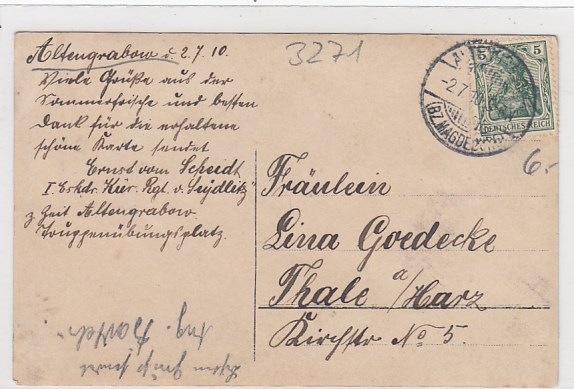 Altengrabow d. 2.7.10.
Viele Grüße aus der
Sommerfrische und besten
Dank für die erhaltene
schöne Karte sendet
Ernst vom Scheidt
I. Eskdr. Kür. Rgt. v. Seydlitz
z Zeit Altengrabow
Truppenübungsplatz.
3271
-2.7.10
(BZ. MAGDEBURG)
5
DEUTSCHES REICH
6.-
Fräulein
Lina Goedecke
Thale a/Harz
Kirchstr No 5.